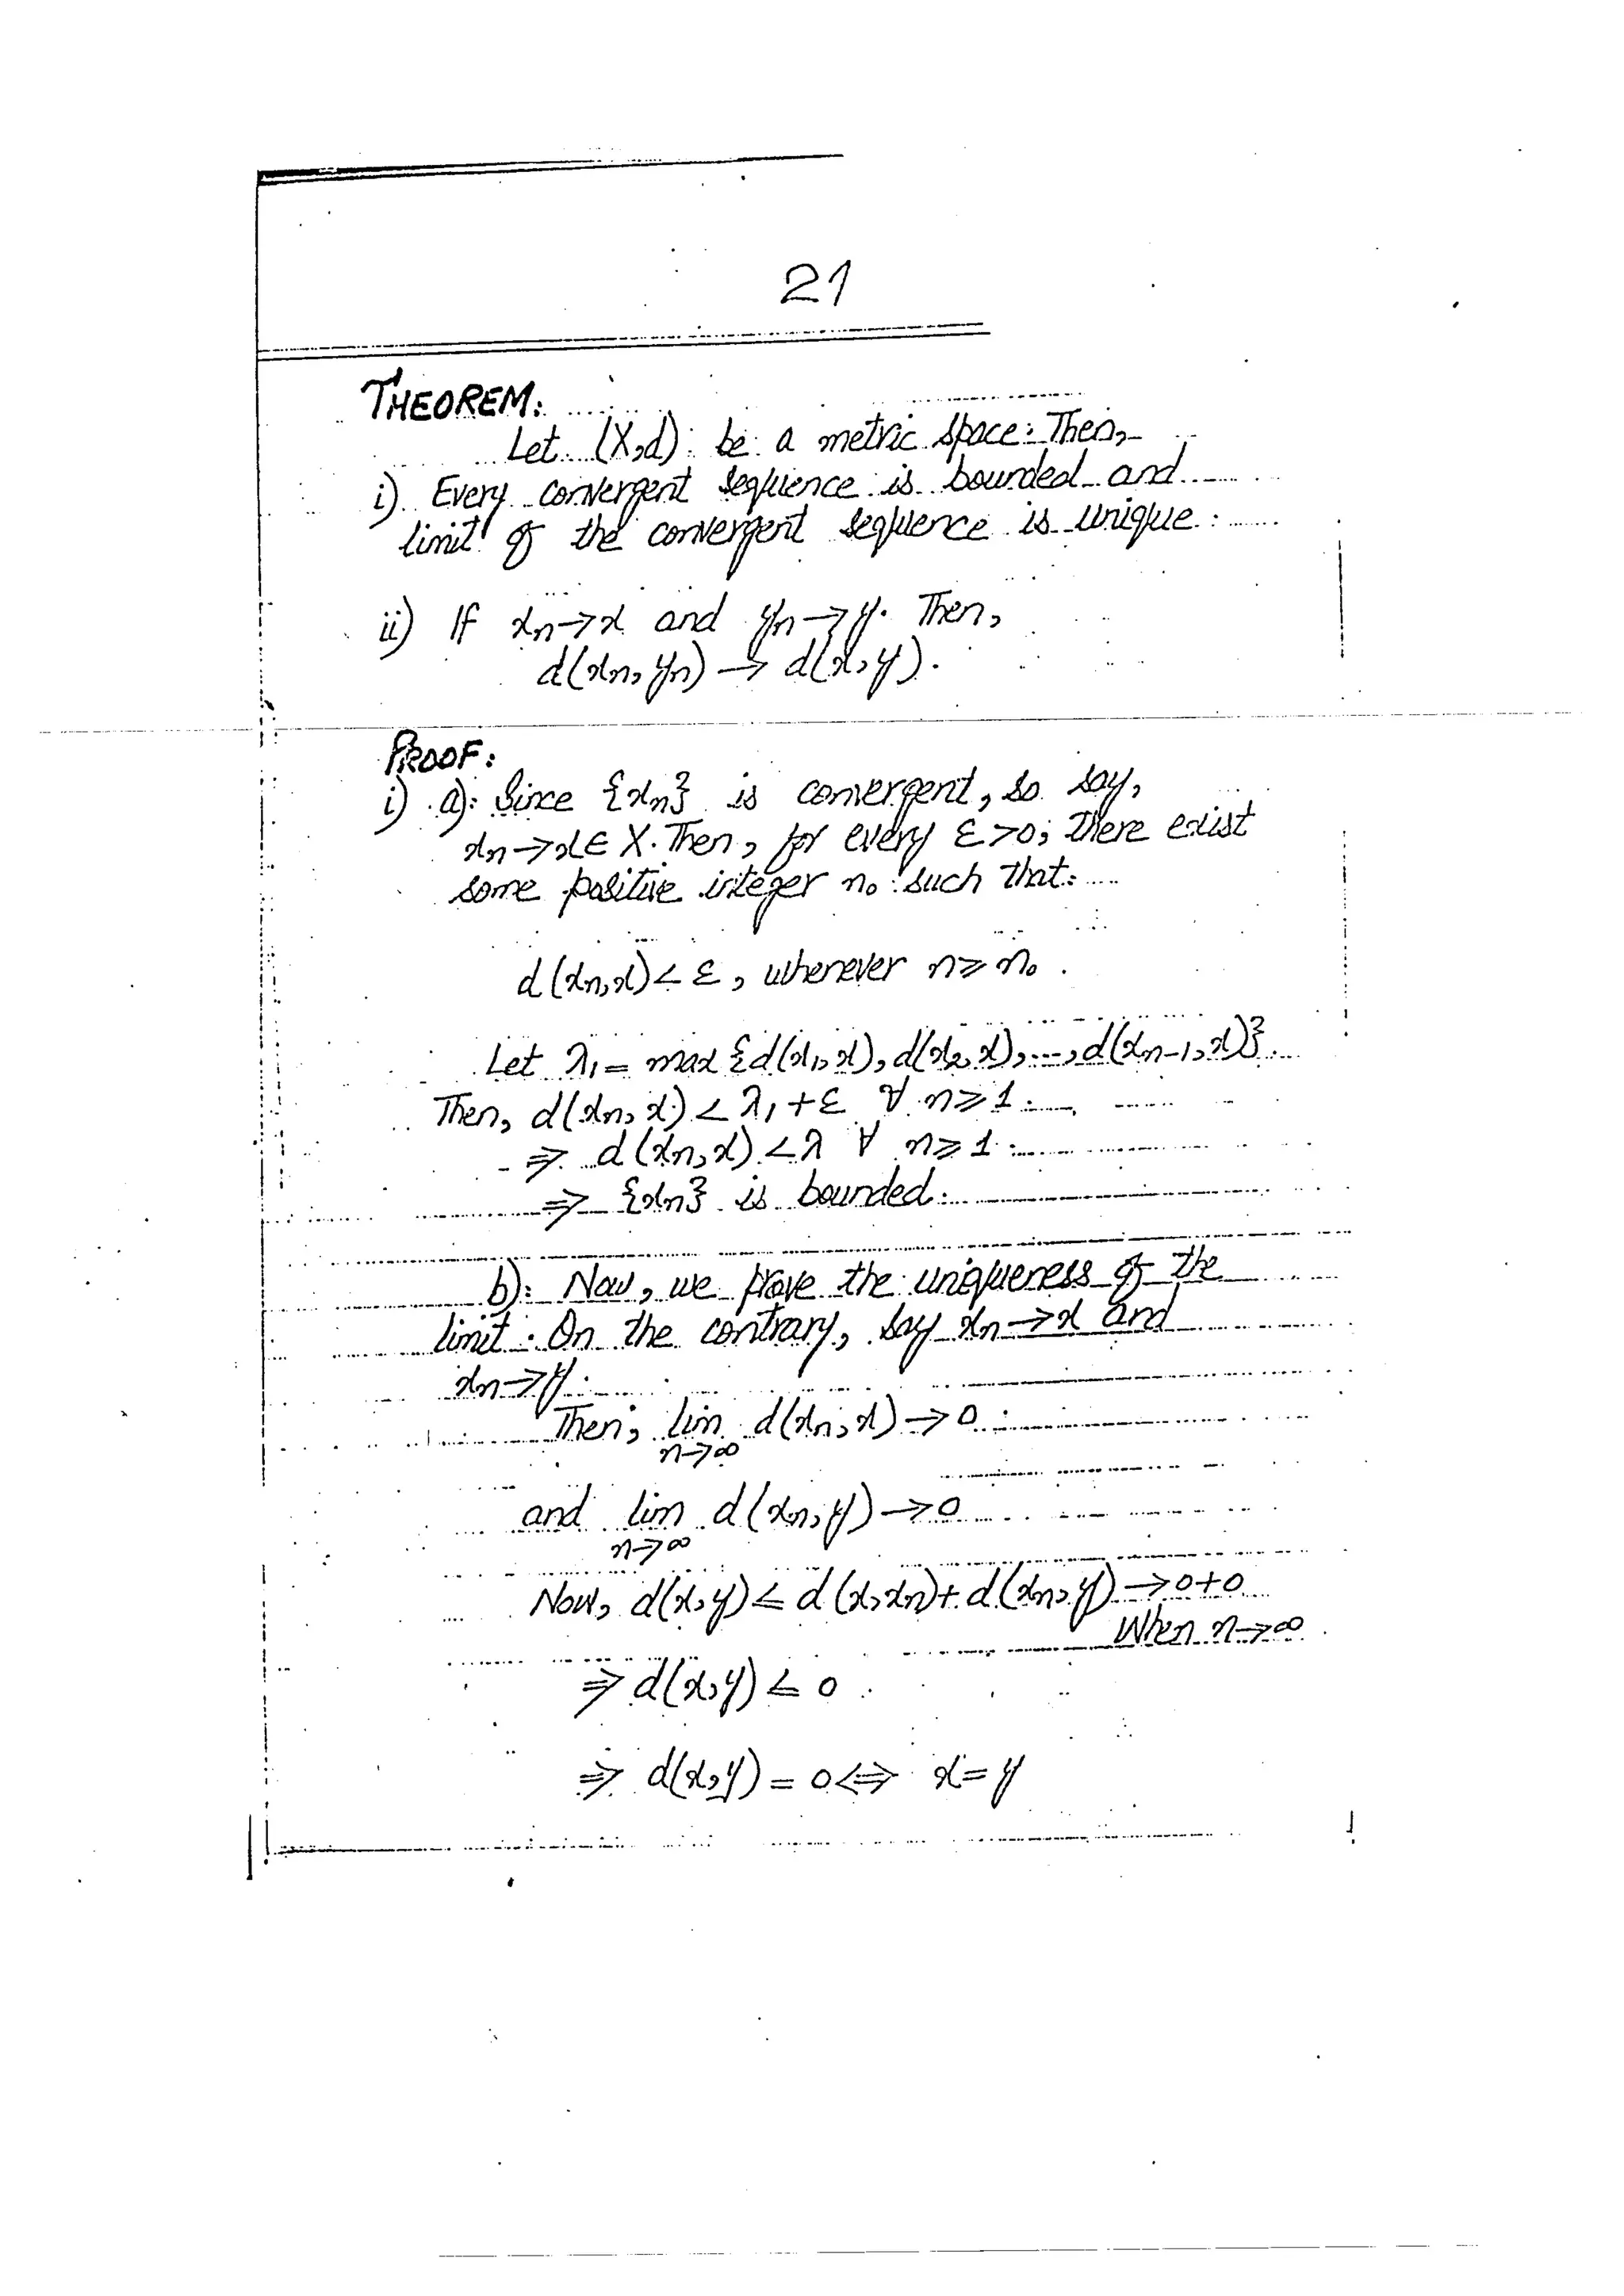 21
THEOREM:
Let (X,d) be a metric space. Then,
i) Every convergent sequence is bounded and
limit of the convergent sequence is unique.
ii) If xn→x and yn→y. Then,
d(xn, yn) → d(x,y).
PROOF:
i) a): Since {xn} is convergent, so say,
xn→x∈X. Then, for every ε>0, there exist
some positive integer n₀ such that
d(xn,x)<ε, whenever n≥n₀.
Let λ₁= max{d(x₁,x),d(x₂,x),...,d(xn-1,x)}.
Then, d(xn,x)<λ₁+ε ∀ n≥1.
⇒ d(xn,x)<λ ∀ n≥1.
⇒ {xn} is bounded.
b): Now, we prove the uniqueness of the
limit. On the contrary, say xn→x and
xn→y.
Then, lim d(xn,x)→0.
n→∞
and lim d(xn,y)→0
n→∞
Now, d(x,y)≤d(x,xn)+d(xn,y)→0+0
When n→∞
⇒ d(x,y)≤0
⇒ d(x,y)=0⇔ x=y